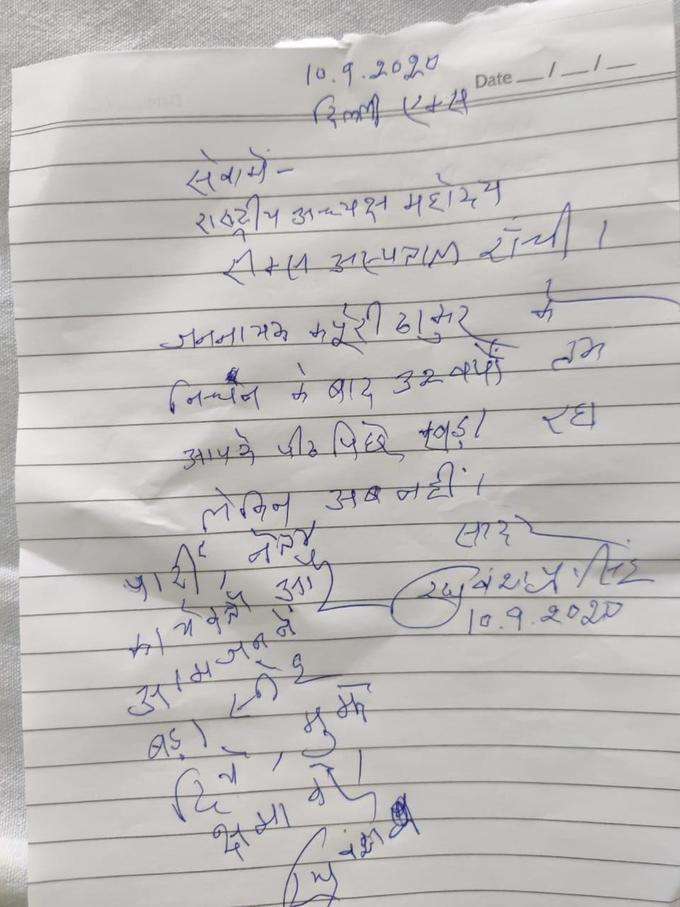 10.9.2020
Date __/__/__
दिल्ली एम्स
सेवामें-
राष्ट्रीय अध्यक्ष महोदय
रीम्स अस्पताल राँची।
जननायक कर्पूरी ठाकुर के
निधन के बाद 32 वर्षों तक
आपके पीठ पिछे खड़ा रहा
लेकिन अब नहीं।
सादर
पार्टी, नेता
रघुवंश प्रसाद सिंह
10.9.2020
कार्यकर्ता और
आमजन ने
बड़ा स्नेह
दिये, मुझे
क्षमा करें।
रघुवंश